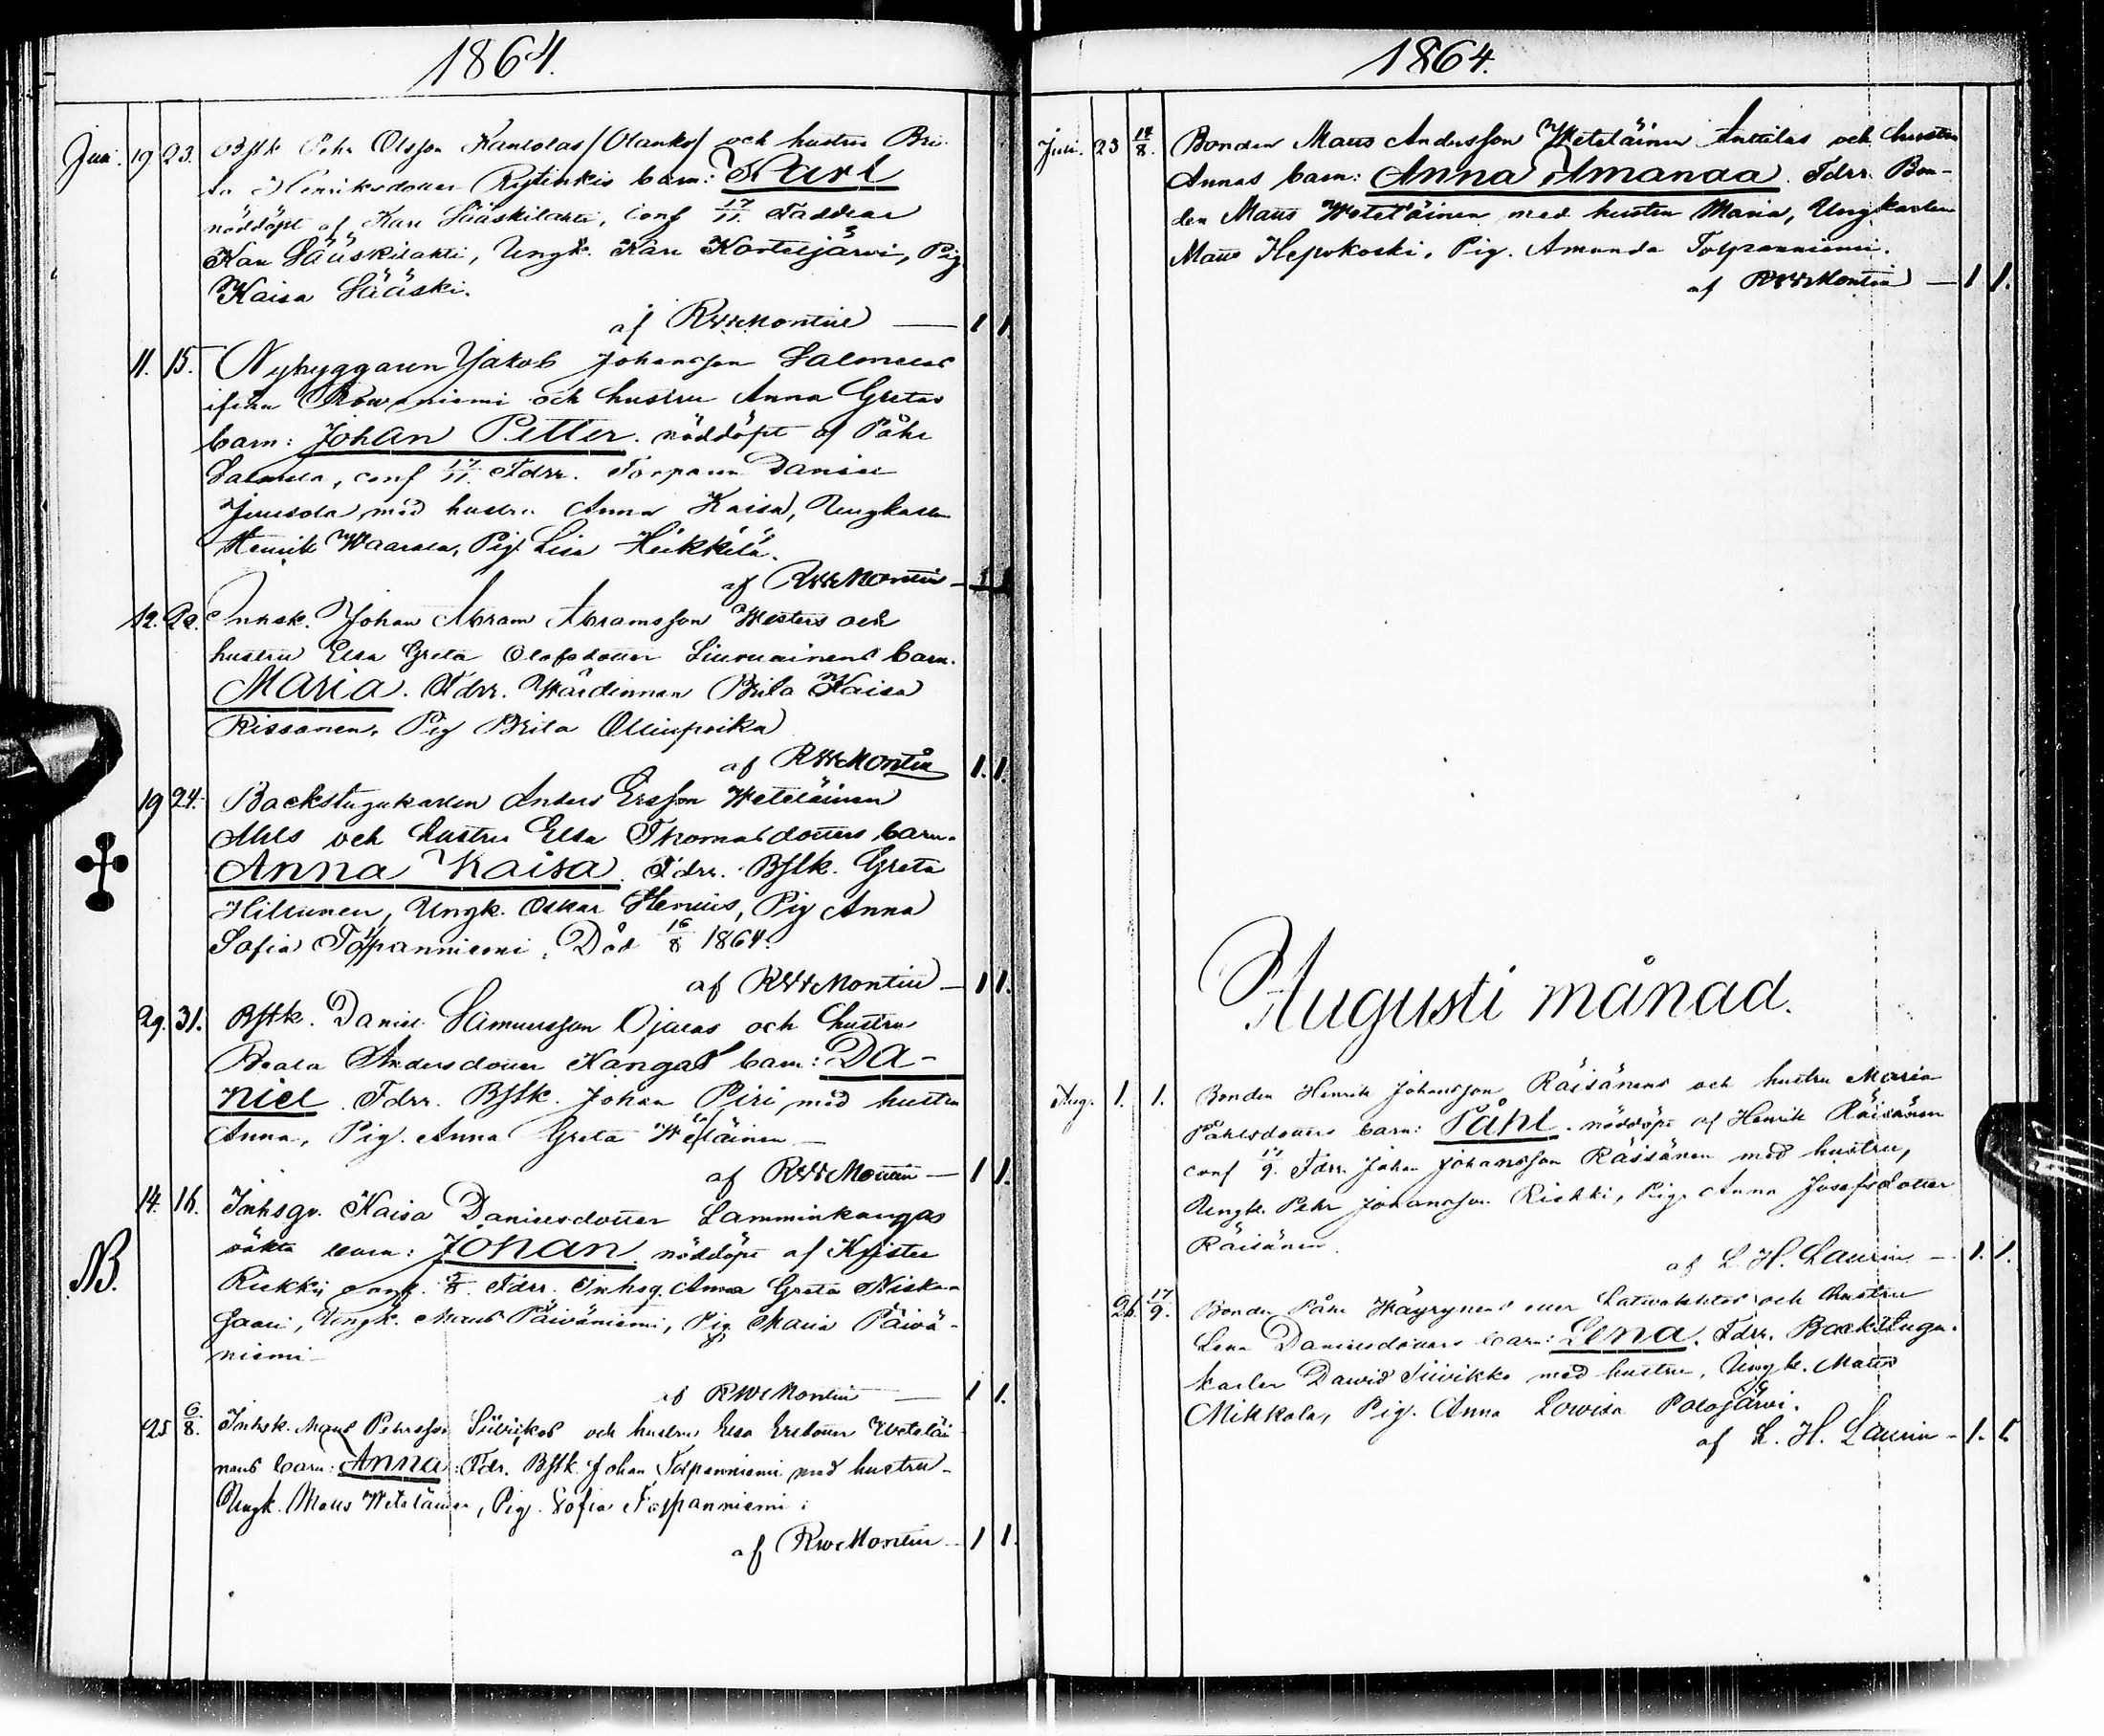 1864.
Juli. 19 23. Bstk Pehr Olsson Kanlolas (Olanko) och hustru Bri-
ta Henriksdotter Rytinkis barn: Karl
nöddöpt af Karl Sääskilahti, conf 17/11. Faddrar
Karl Sääskilahti, Ungk. Karl Korteljärvi, Pig
Kaisa Sääski.
af RWMontin — 1 1.
11. 15. Nybyggaren Jakob Johansson Salmelas
ifrån Rowaniemi och hustru Anna Gretas
barn: Johan Petter. nöddöpt af Påhl
conf 17/11. Fdrr. Torparen Daniel
med hustru Anna Kaisa, Ungkarlen
Henrik Waarala, Pig. Lisa Heikkilä.
af RWMontin — 1 1
12. Inhsk. Johan Abram Abramsson Westers och
hustru Elsa Greta Olofsdotter Liuruainens barn.
Maria. Fdrr. Wärdinnan Brita Kaisa
Rissanen, Pig Brita Ollinpoika
af RWMontin 1. 1.
19 24. Backstugukarlen Anders Ersson Weteläinen
Ahls och hustru Elsa Thomasdotters barn.
Anna Kaisa. Fdrr. Bstk. Greta
Hiltunen, Ungk. Oskar Heruis, Pig Anna
Sofia Torpanniemi. Död 16/8 1864.
af RWMontin — 1 1.
29. 31. Bstk. Daniel Samuelsson Ojalas och hustru
Beata Andersdotter Kangas barn: Da-
niel. Fdrr. Bstk. Johan Piri med hustru
Anna, Pig. Anna Greta Weteläinen —
af RWMontin — 1 1.
14. 16. Inhsqv. Kaisa Danielsdotter Lamminkangas
oäkta barn: Johan. nöddöpt af Krister
Riekki conf. Fdrr. Inhsq. Anna Greta Niskan
Ungk. Mats Päiväniemi, Pig Maria Päivä-
niemi —
af RWMontin — 1 1.
NB.
25 6/8. Inhsk. Mats Pehrsson Siivikos och hustru Elsa Ersdotter Weteläi-
nens barn: Anna: Fdr. Bstk. Johan Torpanniemi med hustru —
Ungk. Mats Weteläinen, Pig. Sofia Torpanniemi.
af RWMontin — 1 1.
1864.
Juli. 23 14/8. Bonden Mats Andersson Weteläinen Anttilas och hustru
Annas barn: Anna Amanda. Fdrr. Bon-
den Mats Weteläinen med hustru Maria, Ungkarlen
Mats Hepokoski, Pig. Amanda Torpanniemi.
af RWMontin — 1 1.
Augusti månad.
Aug. 1. 1. Bonden Henrik Johansson Räisänens och hustru Maria
Påhlsdotters barn: Påhl. nöddöpt af Henrik Räisänen
conf 17/9. Fdrr. Johan Johansson Räisänen med hustru,
Ungk. Pehr Johansson Riekki, Pig. Anna Josefsdotter
Räisänen.
af L. H. Laurin — 1. 1.
26. 17/9. Bonden Påhl Häyrynens eller Latvalehtos och hustru
Lena Danielsdotters barn: Lena. Fdrr. Backstugu-
karlen Dawid Siivikko med hustru, Ungk. Mats
Mikkola, Pig. Anna Lowisa Palojärvi.
af L. H. Laurin — 1. 1.